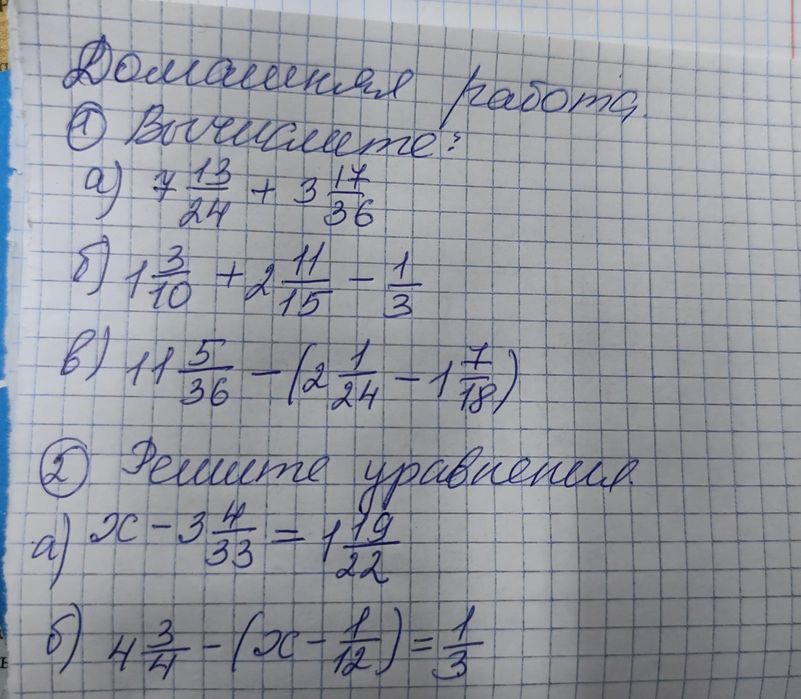 Домашняя работа.
① Вычислите:
а) 7 13/24 + 3 17/36
б) 1 3/10 + 2 11/15 - 1/3
в) 11 5/36 - (2 1/24 - 1 7/18)
② Решите уравнения.
а) x - 3 4/33 = 1 19/22
б) 4 3/4 - (x - 1/12) = 1/3